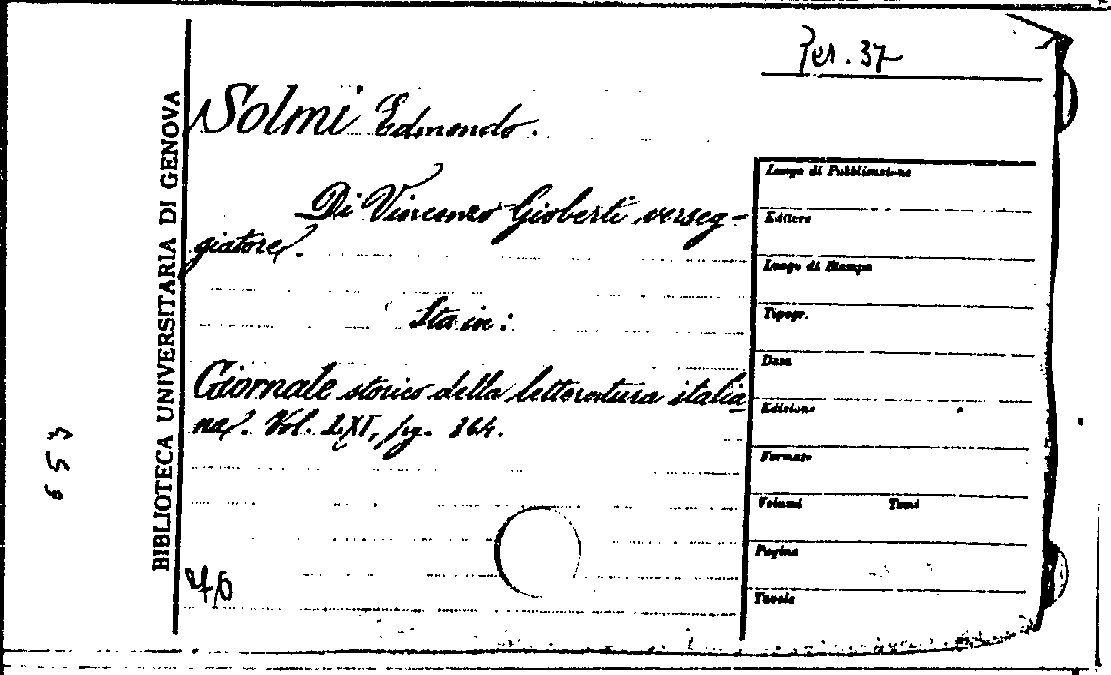 Per. 37
Solmi Edmondo.
Di Vincenzo Gioberti verseg-
giatore.
Sta in:
Giornale storico della letteratura italia-
na. Vol. LXI, pg. 264.
BIBLIOTECA UNIVERSITARIA DI GENOVA
Luogo di Pubblicazione
Editore
Luogo di Stampa
Tipogr.
Data
Edizione
Formato
Volumi Tomi
Pagine
Tavole